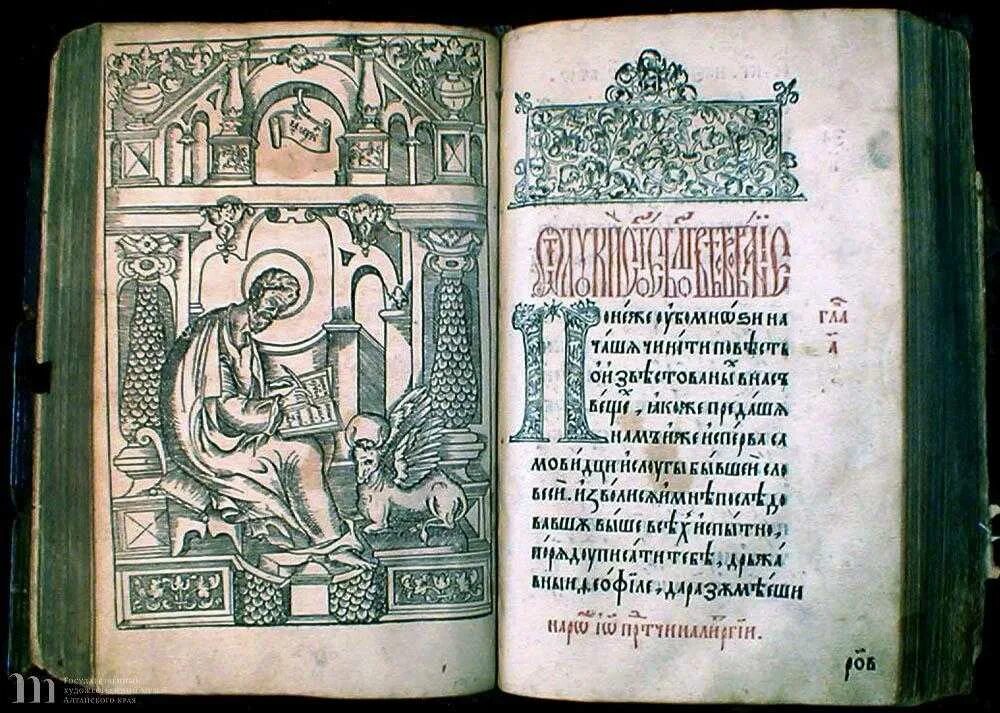 Ѿ лꙋкы ст҃ое бл҃говѣствованїе
гла҃
а҃
Понеже оубо мноѕи на
чашѧ чинити повѣсть
ѡ извѣствованыⷯ в насъ
вещеⷯ, ꙗкоже предашѧ
намъ иже исперва са
мовидци и слоугы бывшеи сло
весѝ. изволисѧ и мнѣ послѣдо
вавшꙋ выше всѣⷯ испытно,
порѧдоу писати тебѣ, дръжа
вныи ѳеѡфіле, да разꙋмѣеши
на роⷤ іѡⷩ прⷣтчи на лиⷮргїи.
РО҃В
Государственный
художественный музей
Алтайского края